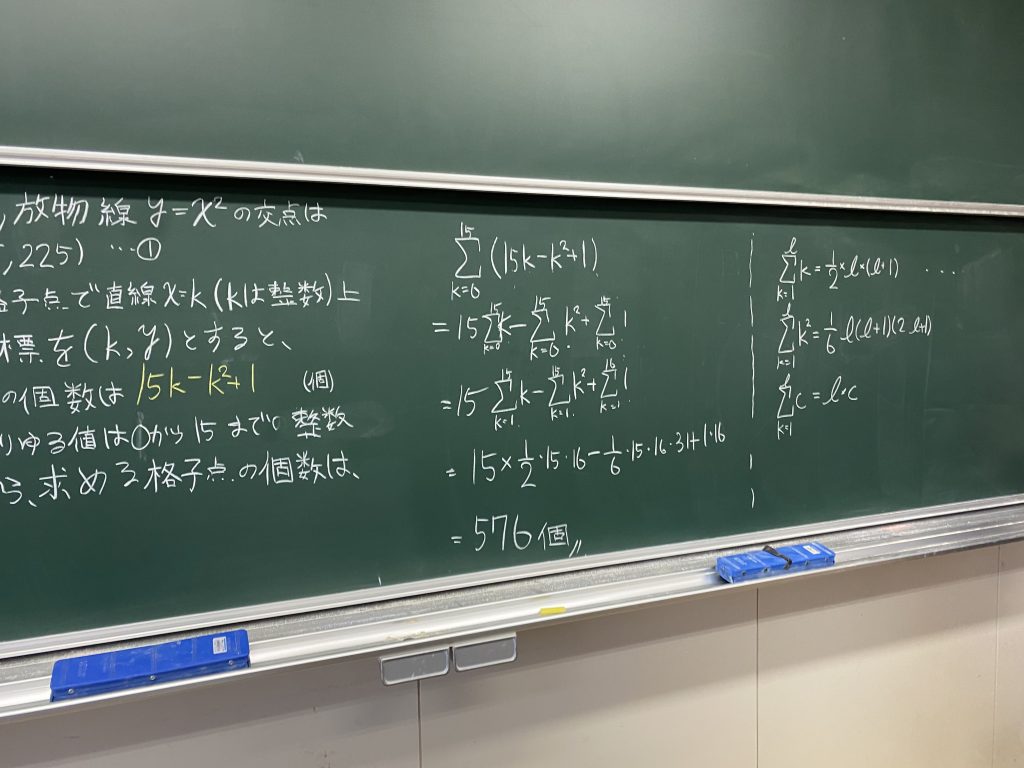 ,放物線 y=x²の交点は
,225) …①
格子点で直線x=k(kは整数)上
標を(k,y)とすると、
の個数は 15k-k²+1 (個)
りゆる値は0から15までの整数
ら、求める格子点の個数は、
∑_{k=0}^{15}(15k-k²+1)
=15∑_{k=0}^{15}k-∑_{k=0}^{15}k²+∑_{k=0}^{15}1
=15∑_{k=1}^{15}k-∑_{k=1}^{15}k²+∑_{k=1}^{16}1
=15×1/2・15・16-1/6・15・16・31+1・16
=576個
∑_{k=1}^{l}k=1/2×l×(l+1) …
∑_{k=1}^{l}k²=1/6 l(l+1)(2l+1)
∑_{k=1}^{l}c=l・c